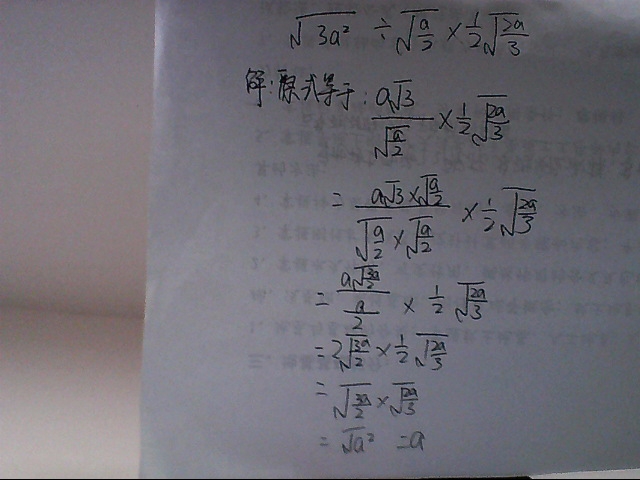 √3a² ÷ √(a/2) × 1/2 √(2a/3)
解:原式等于: a√3 / √(a/2) × 1/2 √(2a/3)
= a√3 × √(a/2) / √(a/2) × √(a/2) × 1/2 √(2a/3)
= a√(3a/2) / (a/2) × 1/2 √(2a/3)
= 2√(3a/2) × 1/2 √(2a/3)
= √(3a/2) × √(2a/3)
= √a² = a